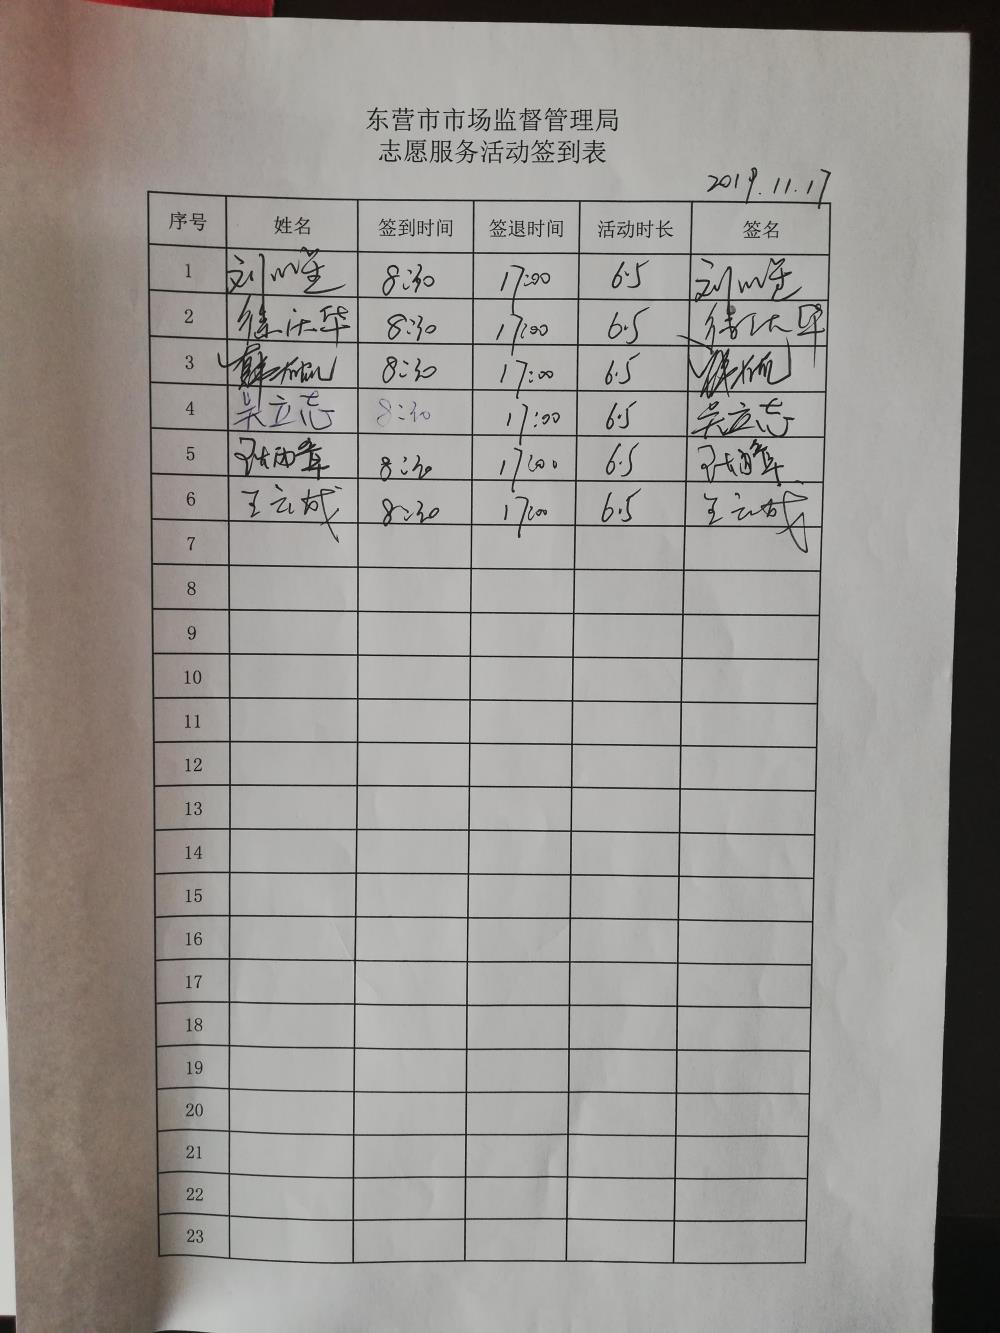 东营市市场监督管理局
志愿服务活动签到表
2019.11.17
序号 姓名 签到时间 签退时间 活动时长 签名
1 刘 8:30 17:00 6.5 刘
2 徐洪华 8:30 17:00 6.5 徐洪华
3 8:30 17:00 6.5
4 吴立志 8:30 17:00 6.5 吴立志
5 8:30 17:00 6.5
6 王云城 8:30 17:00 6.5 王云城
7
8
9
10
11
12
13
14
15
16
17
18
19
20
21
22
23